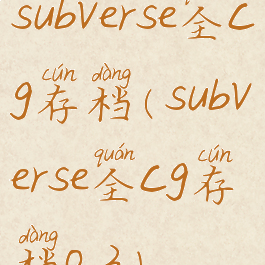 subverse全c
g存档(subv
erse全cg存
档0.3)